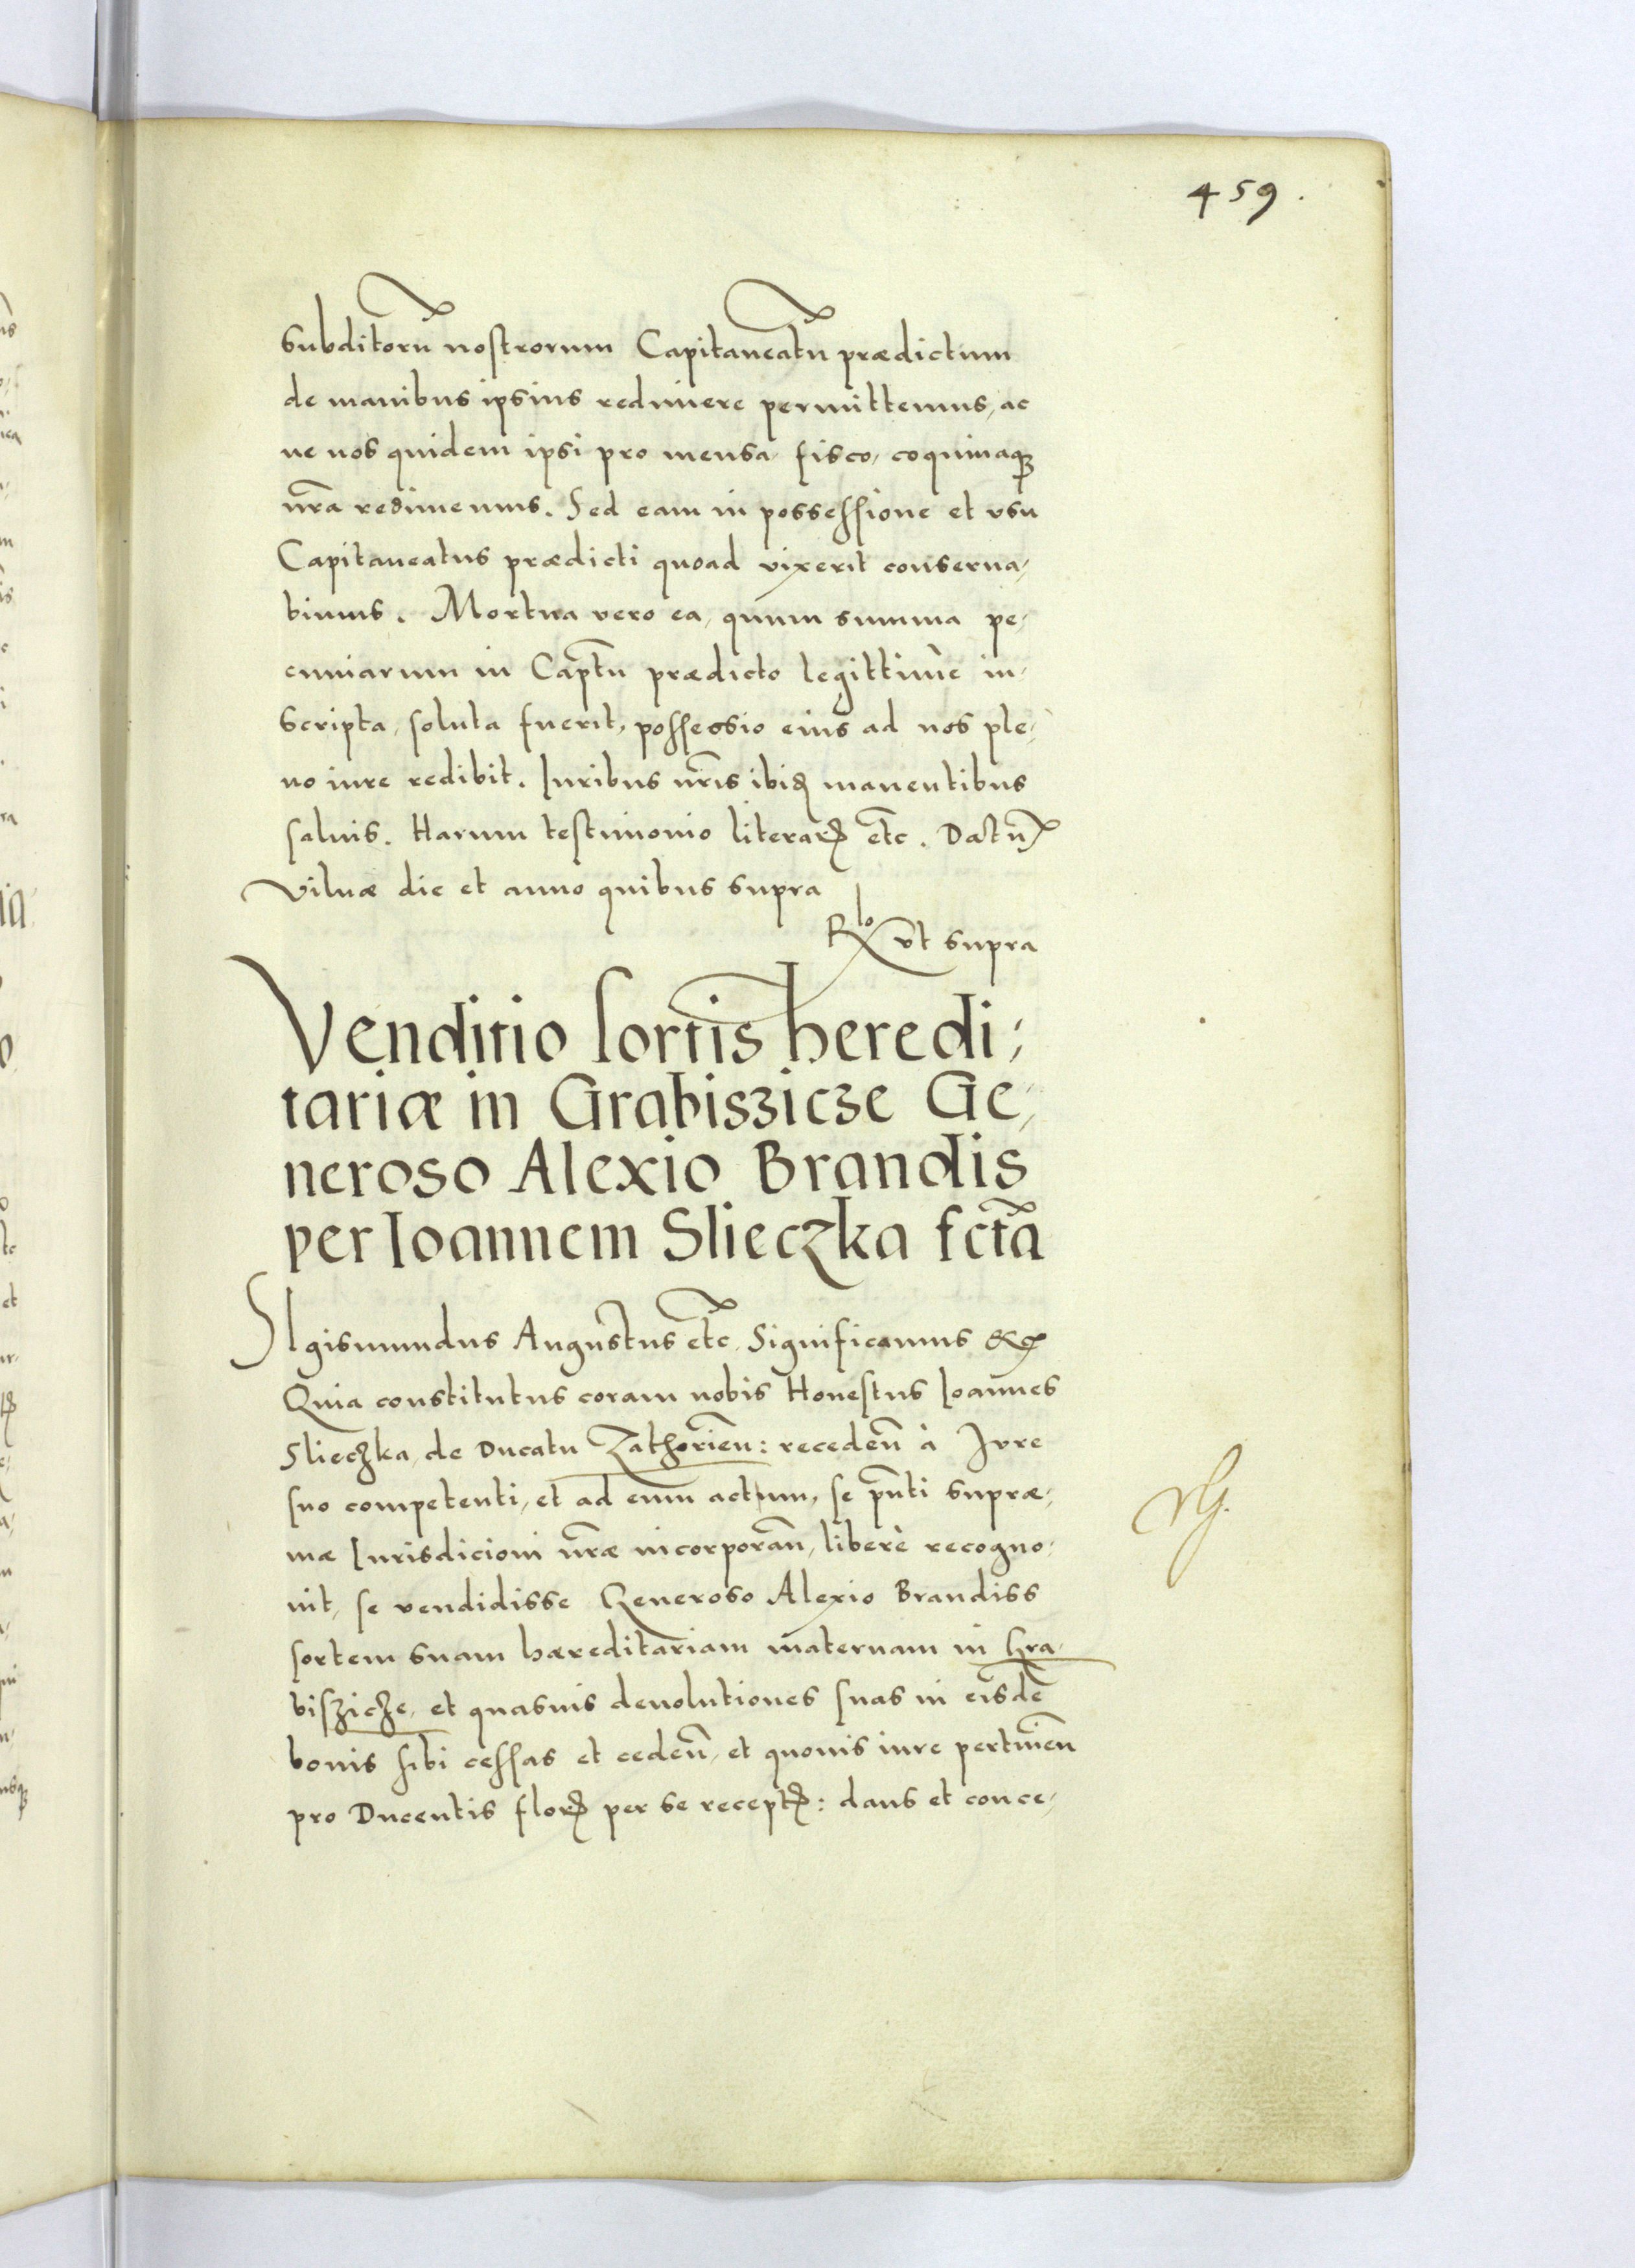 459.
subditorũ nostrorum Capitaneatũ prædictum
de manibus ipsius redimere permittemus, ac
ne nos quidem ipsi pro mensa, fisco, coquinaqꝫ
nr̃a redimemus. Sed eam in possessione et vsu
Capitaneatus prædicti quoad vixerit conserua,
bimus. Mortua vero ea, quum summa pe,
cuniarum in Capt̃u prædicto legittimè in,
scripta, soluta fuerit, possessio eius ad nos ple,
no iure redibit. Iuribus nr̃is ibid manentibus
saluis. Harum testimonio literarꝝ etc̃. Datũ
Vilnæ die et anno quibus supra
Rlo vt supra
Venditio sortis heredi,
tariæ in Grabiszicze Ge,
neroso Alexio Brandis
per Ioannem Slieczka fct̃a
SIgismundus Augustus etc̃. Significamus &c
Quia constitutus coram nobis Honestus Ioannes
Slieczka, de Ducatu Zathorien̄: receden̄ à Jure
suo competenti, et ad eum actum, se pñti supræ,
mæ Iurisdicioni nr̃æ incorporan̄, liberè recogno,
uit, se vendidisse Generoso Alexio Brandiss
sortem suam hæreditariam maternam in Gra,
biszicze, et quasuis deuolutiones suas in eisdẽ
bonis sibi cessas et ceden̄, et quouis iure pertinen̄
pro Ducentis florꝝ per se receptꝝ: dans et conce,